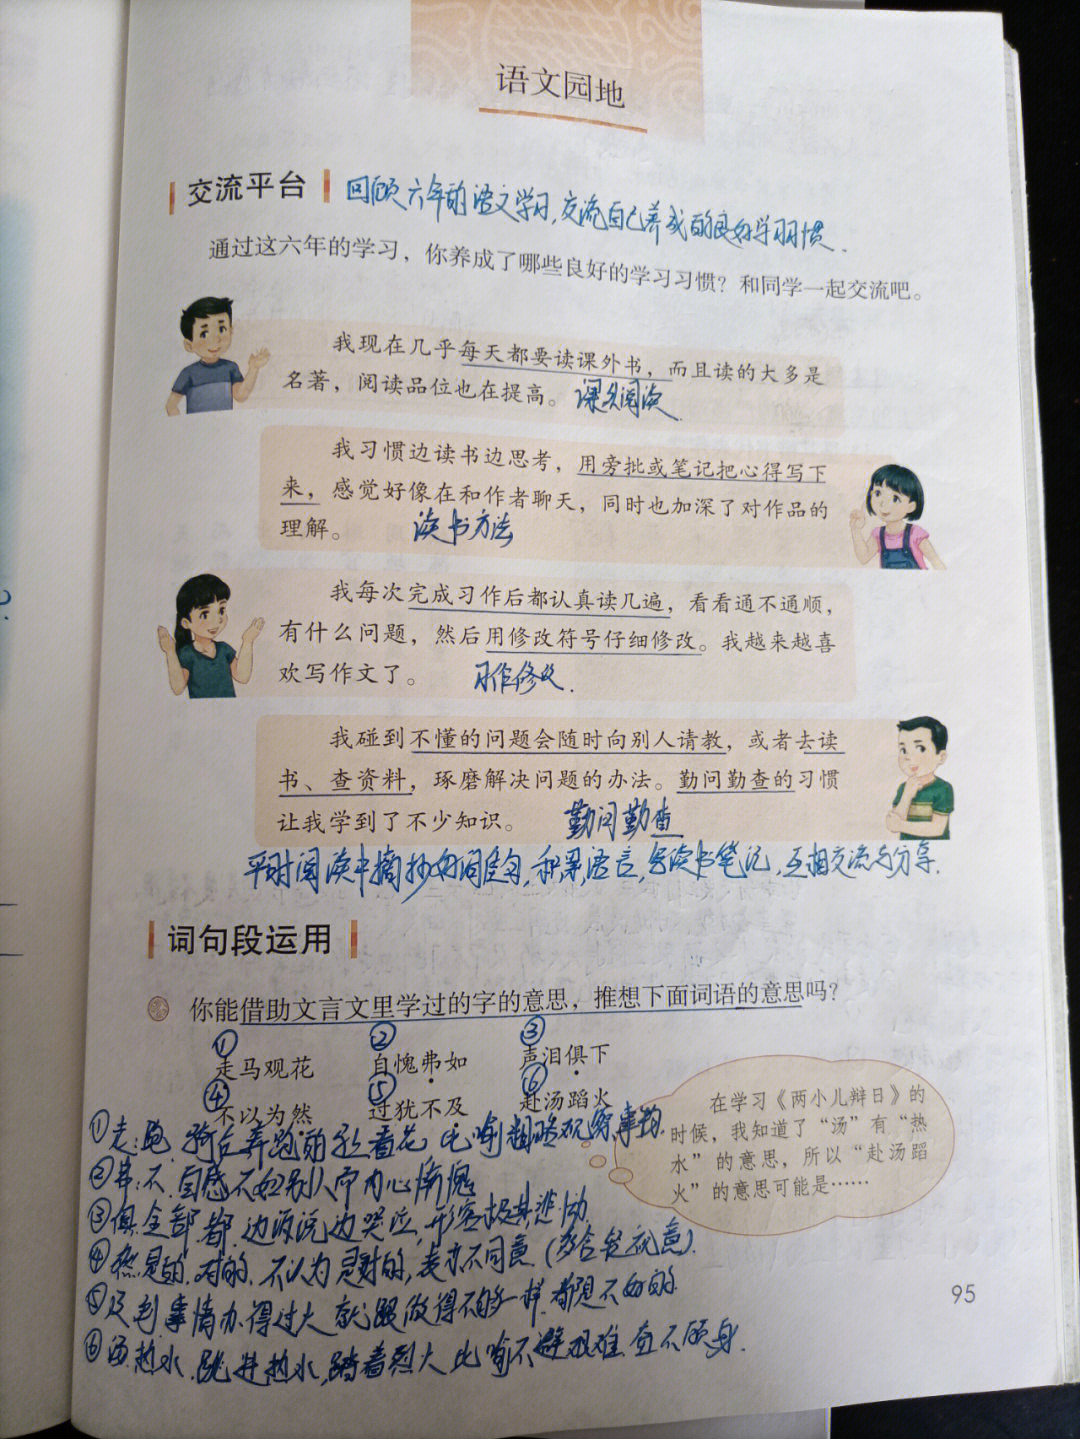 语文园地
交流平台 回顾六年的语文学习,交流自己养成的良好学习习惯.
通过这六年的学习，你养成了哪些良好的学习习惯？和同学一起交流吧。
我现在几乎每天都要读课外书，而且读的大多是
名著，阅读品位也在提高。 课外阅读
我习惯边读书边思考，用旁批或笔记把心得写下
来，感觉好像在和作者聊天，同时也加深了对作品的
理解。 读书方法
我每次完成习作后都认真读几遍，看看通不通顺，
有什么问题，然后用修改符号仔细修改。我越来越喜
欢写作文了。 习作修改.
我碰到不懂的问题会随时向别人请教，或者去读
书、查资料，琢磨解决问题的办法。勤问勤查的习惯
让我学到了不少知识。 勤问勤查
平时阅读中摘抄好词佳句,积累语言,写读书笔记,互相交流与分享.
词句段运用
你能借助文言文里学过的字的意思，推想下面词语的意思吗？
① ② ③
走马观花 自愧弗如 声泪俱下
④ ⑤ ⑥
不以为然 过犹不及 赴汤蹈火
在学习《两小儿辩日》的
时候，我知道了“汤”有“热
水”的意思，所以“赴汤蹈
火”的意思可能是……
①走:跑. 骑在奔跑的马上看花 比喻粗略观察事物.
②弗:不.自感不如别人而内心惭愧
③俱:全部.都.边诉说边哭泣,形容极其悲恸.
④然是的.对的.不认为是对的,表示不同意(多含轻视意).
⑤及到事情办得过火就跟做得不够一样.都是不好的.
⑥汤.热水.跳进热水,踏着烈火比喻不避艰难.奋不顾身.
95